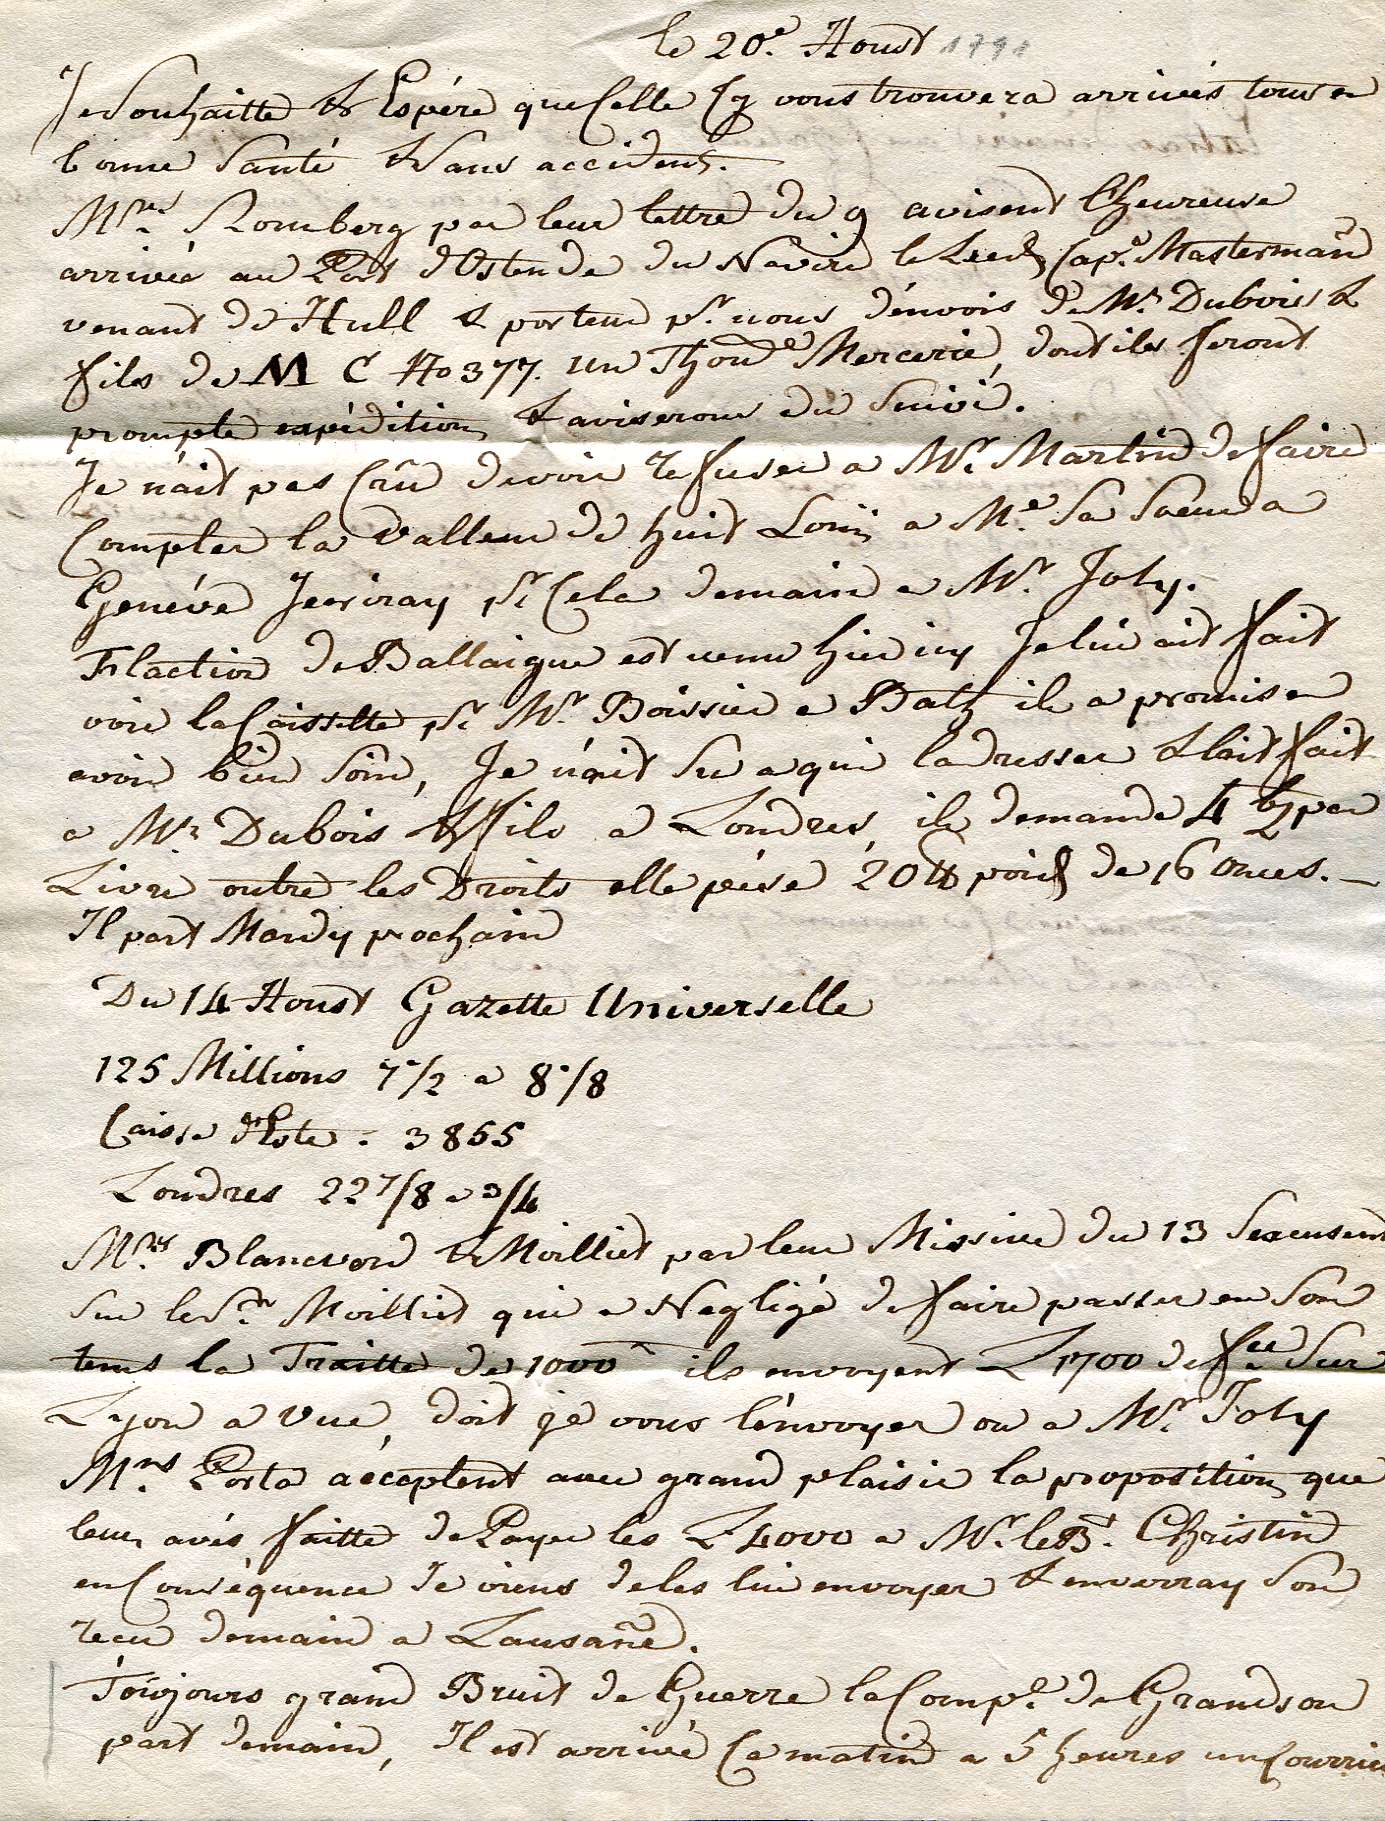 le 20.e Aoust 1791
Je Souhaitte & Espére que Celle Cy vous trouvera arrivés tous en
bonne Santé & Sans accident.
Mrs. Romberg par leur lettre du 9 avisent l'heureuse
arrivée au Port d'Ostende du Navire le Leeds Cape. Masterman
venant de Hull & porteur pr. nous d'énvois de Mr. Dubois &
fils de M C No 377. un Thone Mercerie, dont ils feront
prompte expédition & aviserons du Suivi.
Je n'ait pas Crû devoir refuser a Mr. Martin de faire
Compter la Valleur de huit Loüis a Me. Sa Soeur a
Genéve Jecriray pr. Cela demain a Mr. Joly.
Flaction de Ballaigue est venu hier icy Je lui ait fait
voir la Caissette pr. Mr. Boissier a Bath il a promis en
avoir bien Soin, Je n'ait Su a qui l'adresser & l'ait fait
a Mr. Dubois & fils a Londres, il demande 4 bz par
Livre outre les Droits elle pése 20 ℔ poids de 16 Onces. —
Il part Mardy prochain
Du 14 Aoust Gazette Universelle
125 Millions 7 1/2 a 8 1/8
Caisse d'Este. 3855
Londres 22 7/8 a 3/4
Mrs. Blancvord & Moilliet par leur Missive du 13 Sexcusent
Sur le Sr. Moilliet qui a Negligé de faire passer en Son
tems la Traitte de 1000 ils envoyent L 1700 de fce Sur
Lyon a vue, doit je vous l'énvoyer ou a Mr. Joly
Mrs. Porta acceptent avec grand plaisir la proposition que
leur avés faitte de Payer les L 4000 a Mr. le Bt. Christin
en Conséquence Je viens de les lui envoyer & enverray Son
recu demain a Lausanne.
Toujours grand Bruit de Guerre la Compe. de Grandson
part demain, Il est arrivé Ce matin a 5 heures un Courrier